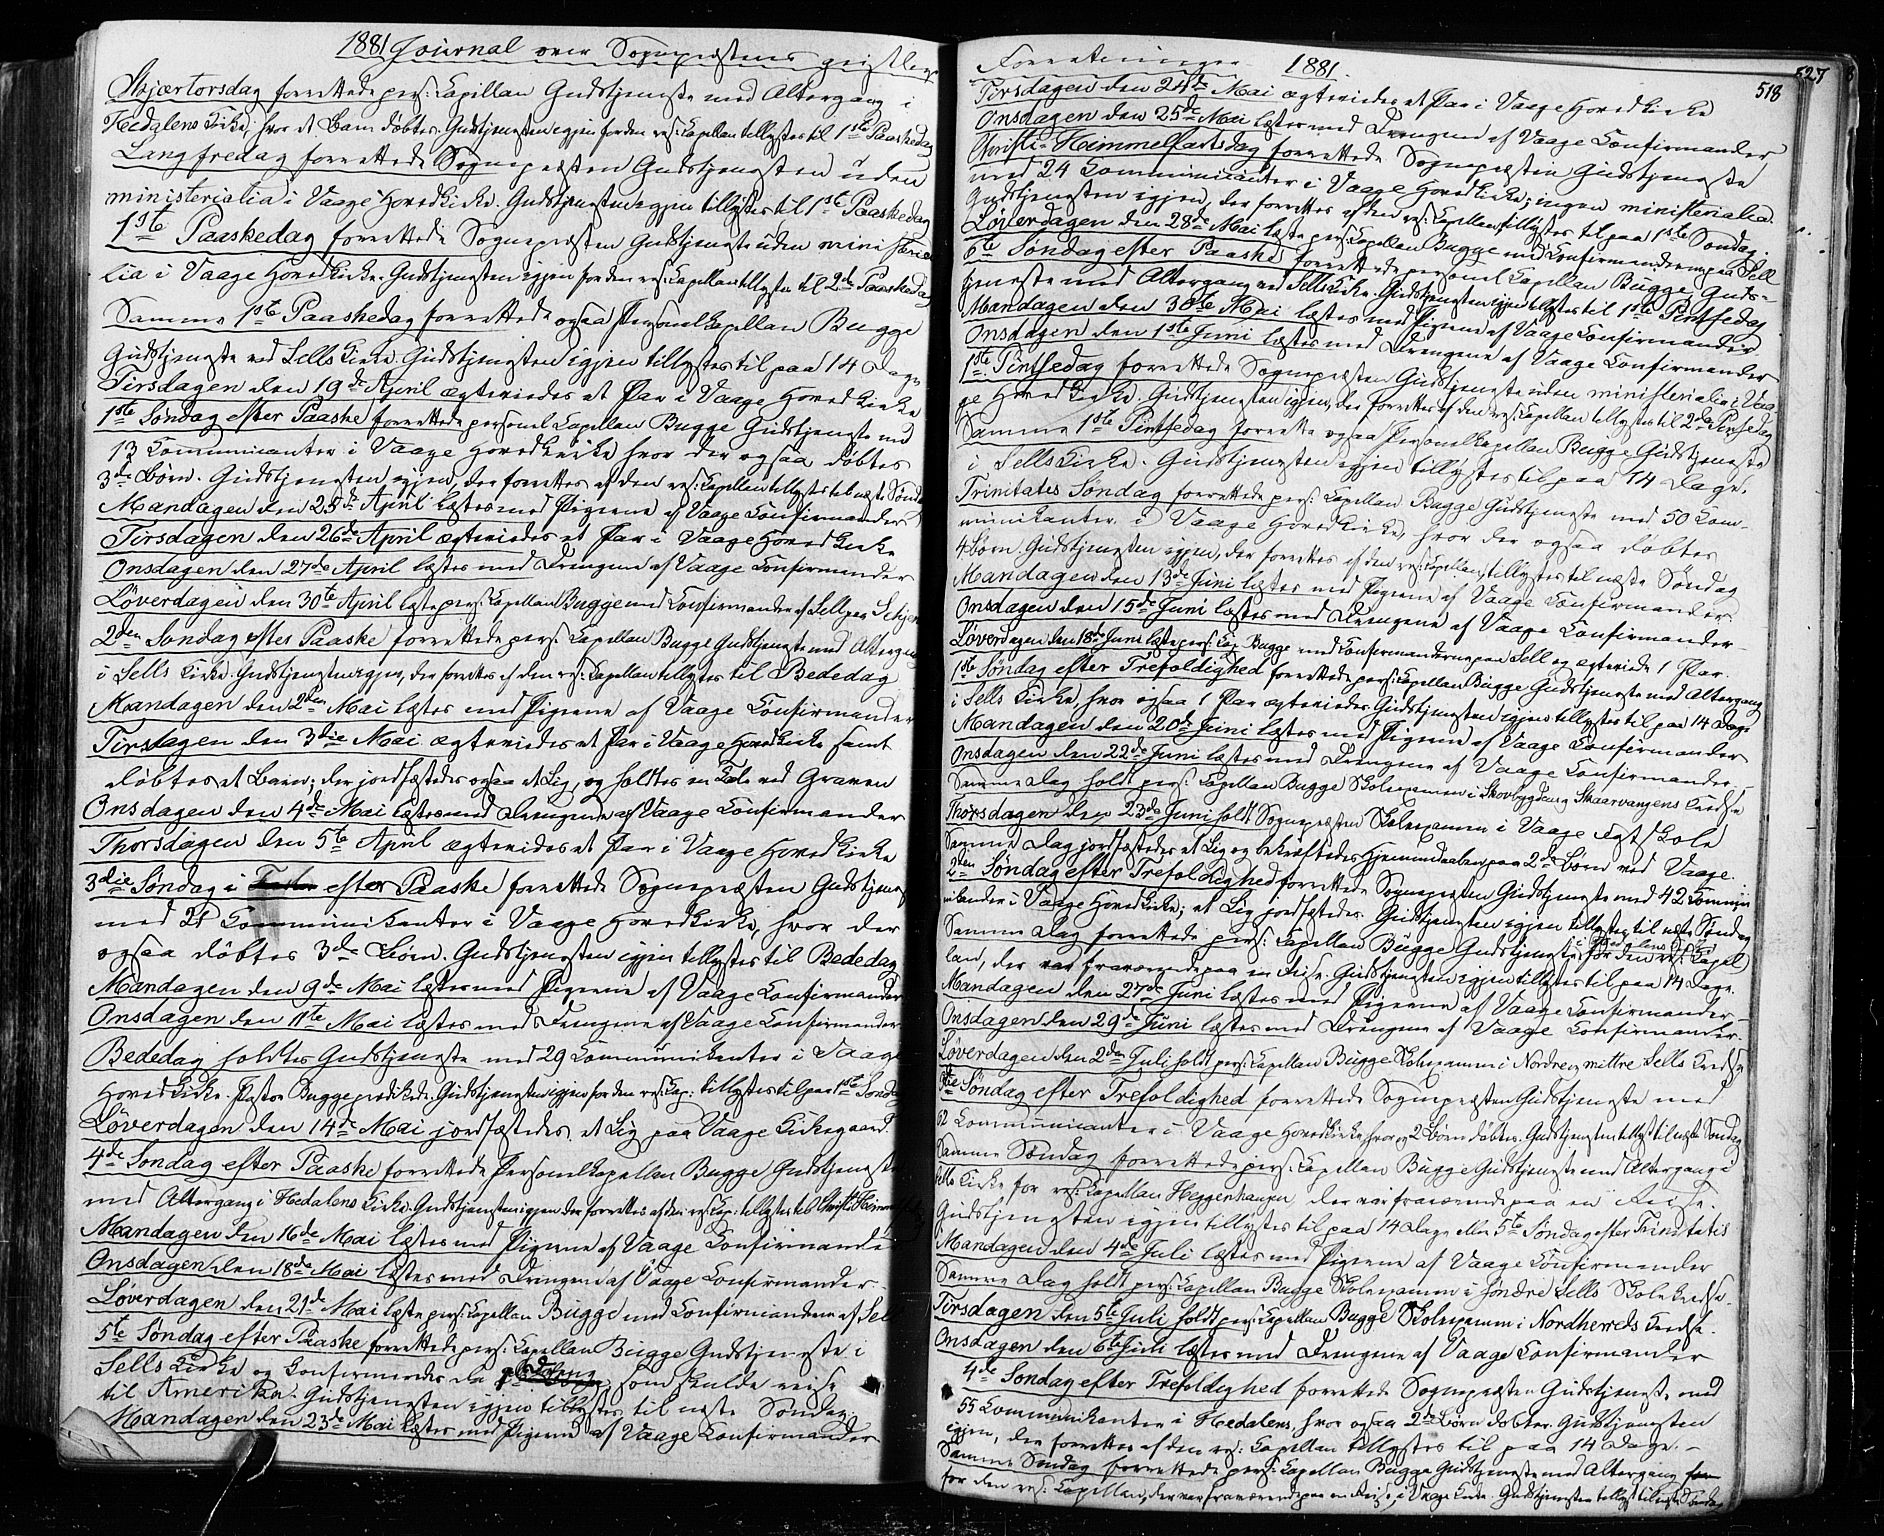 1881 Journal over Sognepræstens geistlige
Skjærtorsdag forrettede pers: Capellan Gudstjeneste med Altergang i
Hedalens Kirke, hvor et Barn døbtes. Gudstjenesten igjen for den res: Capellan tillystes til 1ste Paaskedag
Langfredag forrettede Sognepræsten Gudstjenesten uden
ministerialia i Vaage Hovedkirke. Gudstjenesten igjen tillystes til 1ste Paaskedag
1ste Paaskedag forrettede Sognepræsten Gudstjeneste uden ministeria
lia i Vaage Hovedkirke. Gudstjenesten igjen for den res: Capellan tillystes til 2den Paaskedag
Samme 1ste Paaskedag forrettede ogsaa Personelkapellan Bugge
Gudstjeneste ved Sells Kirke. Gudstjenesten igjen tillystes til paa 14 Dage
Tirsdagen den 19de April ægteviedes et Par i Vaage Hovedkirke
1ste Søndag efter Paaske forrettede personel Capellan Bugge Gudstjeneste med
13 Communicanter i Vaage Hovedkirke hvor der ogsaa døbtes
3de Børn. Gudstjenesten igjen, der forrettes af den res: Capellan tillystes til næste Sønda
Mandagen den 25de April læstes med Pigerne af Vaage Confirmander
Tirsdagen den 26de April ægteviedes et Par i Vaage Hovedkirke
Onsdagen den 27de April læstes med Drengene af Vaage Confirmander
Løverdagen den 30te April læste pers: Capellan Bugge med Confirmander af Sell
2den Søndag efter Paaske forrettede pers: Capellan Bugge Gudstjeneste med Altergang
i Sells Kirke. Gudstjenesten igjen, der forrettes af den res: Capellan tillystes til Bededag
Mandagen den 2den Mai læstes med Pigerne af Vaage Confirmander
Tirsdagen den 3die Mai ægteviedes et Par i Vaage Hovedkirke samt
døbtes et Barn; der jordfæstedes ogsaa et Lig, og holdtes en Tale ved Graven
Onsdagen den 4de Mai læstes med Drengene af Vaage Confirmander
Thorsdagen den 5te April ægteviedes et Par i Vaage Hovedkirke
3die Søndag i efter Paaske forrettede Sognepræsten Gudstjeneste
med 21 Communikanter i Vaage Hovedkirke, hvor der
ogsaa døbtes 3de Børn. Gudstjenesten igjen tillystes til Bededag
Mandagen den 9de Mai læstes med Pigerne af Vaage Confirmander
Onsdagen den 11te Mai læstes med Drengene af Vaage Confirmander
Bededag holdtes Gudstjeneste med 29 Communikanter i Vaage
Hovedkirke. Pastor Bugge prædikede. Gudstjenesten igjen for den res: Cap: tillystes til paa 1ste Søndag
Løverdagen den 14de Mai jordfæstedes et Lig paa Vaage Kirkegaard.
4de Søndag efter Paaske forrettede Personelkapellan Bugge Gudstjeneste
med Altergang i Hedalens Kirke. Gudstjenesten igjen der forrettes af den res: Cap: tillystes til Christi Himmelf
Mandagen den 16de Mai læstes med Pigerne af Vaage Confirmande
Onsdagen den 18de Mai læstes med Drengene af Vaage Confirmander
Løverdagen den 21de Mai læste pers: Capellan Bugge med Confirmanderne af Sel
5te Søndag efter Paaske forrettede pers: Capellan Bugge Gudstjeneste i
Sells Kirke og Confirmerdes da som skulde reise
til Amerika. Gudstjenesten igjen tillystes til næste Søndag.
Mandagen den 23de Mai læstes med Pigerne af Vaage Confirmander
Forretninger 1881. 527
518
Tirsdagen den 24de Mai ægteviedes et Par i Vaage Hovedkirke
Onsdagen den 25de Mai læstes med Drengene af Vaage Confirmander
Christi-Himmelfartsdag forrettede Sognepræsten Gudstjeneste
med 24 Communicanter i Vaage Hovedkirke; ingen ministerialia.
Gudstjenesten igjen, der forrettes af den res: Capellan tillystes til paa 1ste Søndag
Løverdagen den 28de Mai læste pers: Capellan Bugge med Confirmanderne paa Sell
6te Søndag efter Paaske forrettede personel Capellan Bugge Guds-
tjeneste med Altergang ved Sells Kirke. Gudstjenesten igjen tillystes til 1ste Pintsedag
Mandagen den 30te Mai læstes med Pigerne af Vaage Confirmander
Onsdagen den 1ste Juni læstes med Drengene af Vaage Confirmander
1ste Pintsedag forrettede Sognepræsten Gudstjeneste uden ministerialia i Vaa-
ge Hovedkirke. Gudstjenesten igjen, der forrettes af den res: Capellan tillystes til 2den Pintsedag
Samme 1ste Pintsedag forrette ogsaa Personelkapellan Bugge Gudstjeneste
i Sells Kirke. Gudstjenesten igjen tillystes til paa 14 Dage.
Trinitatis Søndag forrettede pers: Capellan Bugge Gudstjeneste med 50 Com-
munikanter i Vaage Hovedkirke, hvor der ogsaa døbtes
4 Børn. Gudstjenesten igjen, der forrettes af den res: Capellan, tillystes til næste Søndag
Mandagen den 13de Juni læstes med Pigerne af Vaage Confirmander
Onsdagen den 15de Juni læstes med Drengene af Vaage Confirmander
Løverdagen den 18de Juni læste pers: Cap Bugge med Confirmanderne paa Sell og ægteviede 1 Par.
1ste Søndag efter Trefoldighed forrettede pers: Capellan Bugge Gudstjeneste med Altergang
i Sells Kirke, hvor ogsaa 1 Par ægteviedes. Gudstjenesten igjen tillystes til paa 14 Dage
Mandagen den 20de Juni læstes med Pigerne af Vaage Confirmander
Onsdagen den 22de Juni læstes med Drengene af Vaage Confirmander
Samme Dag holdt pers: Capellan Bugge Skoleexamen i Skovbygdens Skaarvangens Kredse
Thorsdagen den 23de Juni holdt Sognepræsten Skoleexamen i Vaage Fastskole
Samme Dag jordfæstedes et Lig og bekræftedes Hjemmedaaben paa 2de Børn ved Vaage.
2den Søndag efter Trefoldighed forrettede Sognepræsten Gudstjeneste med 42 Commun
ikanter i Vaage Hovedkirke; et Lig jordfæstedes. Gudstjenesten igjen tillystes til næste Søndag
Samme Dag forrettede pers: Capellan Bugge Gudstjeneste i Hedalens for den res: Capel
lan, der var fraværende paa en Reise. Gudstjenesten igjen tillystes til paa 14 Dage.
Mandagen den 27de Juni læstes med Pigerne af Vaage Confirmander
Onsdagen den 29de Juni læstes med Drengene af Vaage Confirmander.
Løverdagen den 2den Juli holdt pers: Capellan Bugge Skoleexamen i Nordre og mittre Sells Kredse
3die Søndag efter Trefoldighed forrettede Sognepræsten Gudstjeneste med
62 Communicanter i Vaage Hovedkirke, hvor og 2 Børn døbtes. Gudstjenesten tillyst til næste Søndag
Samme Søndag forrettede pers: Capellan Bugge Gudstjeneste med Altergang i
Sells Kirke for res: Capellan Heggenhaugen der var fraværende paa en Reise.
Gudstjenesten igjen tillystes til paa 14 Dage eller 5te Søndag efter Trinitatis
Mandagen den 4de Juli læstes med Pigerne af Vaage Confirmander
Samme Dag holdt pers: Capellan Bugge Skoleexamen i Søndre Sells Skolekredse.
Tirsdagen den 5te Juli holdt pers: Capellan Bugge Skolexamen i Nordherreds Kredse.
Onsdagen den 6te Juli læstes med Drengene af Vaage Confirmander
4de Søndag efter Trefoldighed forrettede Sognepræsten Gudstjeneste med
55 Communikanter i Hedalens, hvor ogsaa 2de Børn døbtes. Gudstjenesten
igjen, der forrettes af den res: Capellan tillystes til paa 14 Dage.-
Samme Søndag forrettede pers: Capellan Bugge Gudstjeneste med Altergang for
for den res: Capellan, der var fraværende paa en Reise, i Vaage Kirke. Gudstjenesten tillyst til næste Søndag